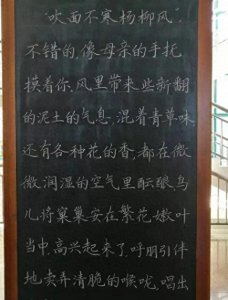 “吹面不寒杨柳风”,
不错的,像母亲的手托
摸着你,风里带来些新翻
的泥土的气息,混着青草味
还有各种花的香,都在微
微润湿的空气里酝酿,鸟
儿将窠巢安在繁花嫩叶
当中,高兴起来了,呼朋引伴
地卖弄清脆的喉咙,唱出